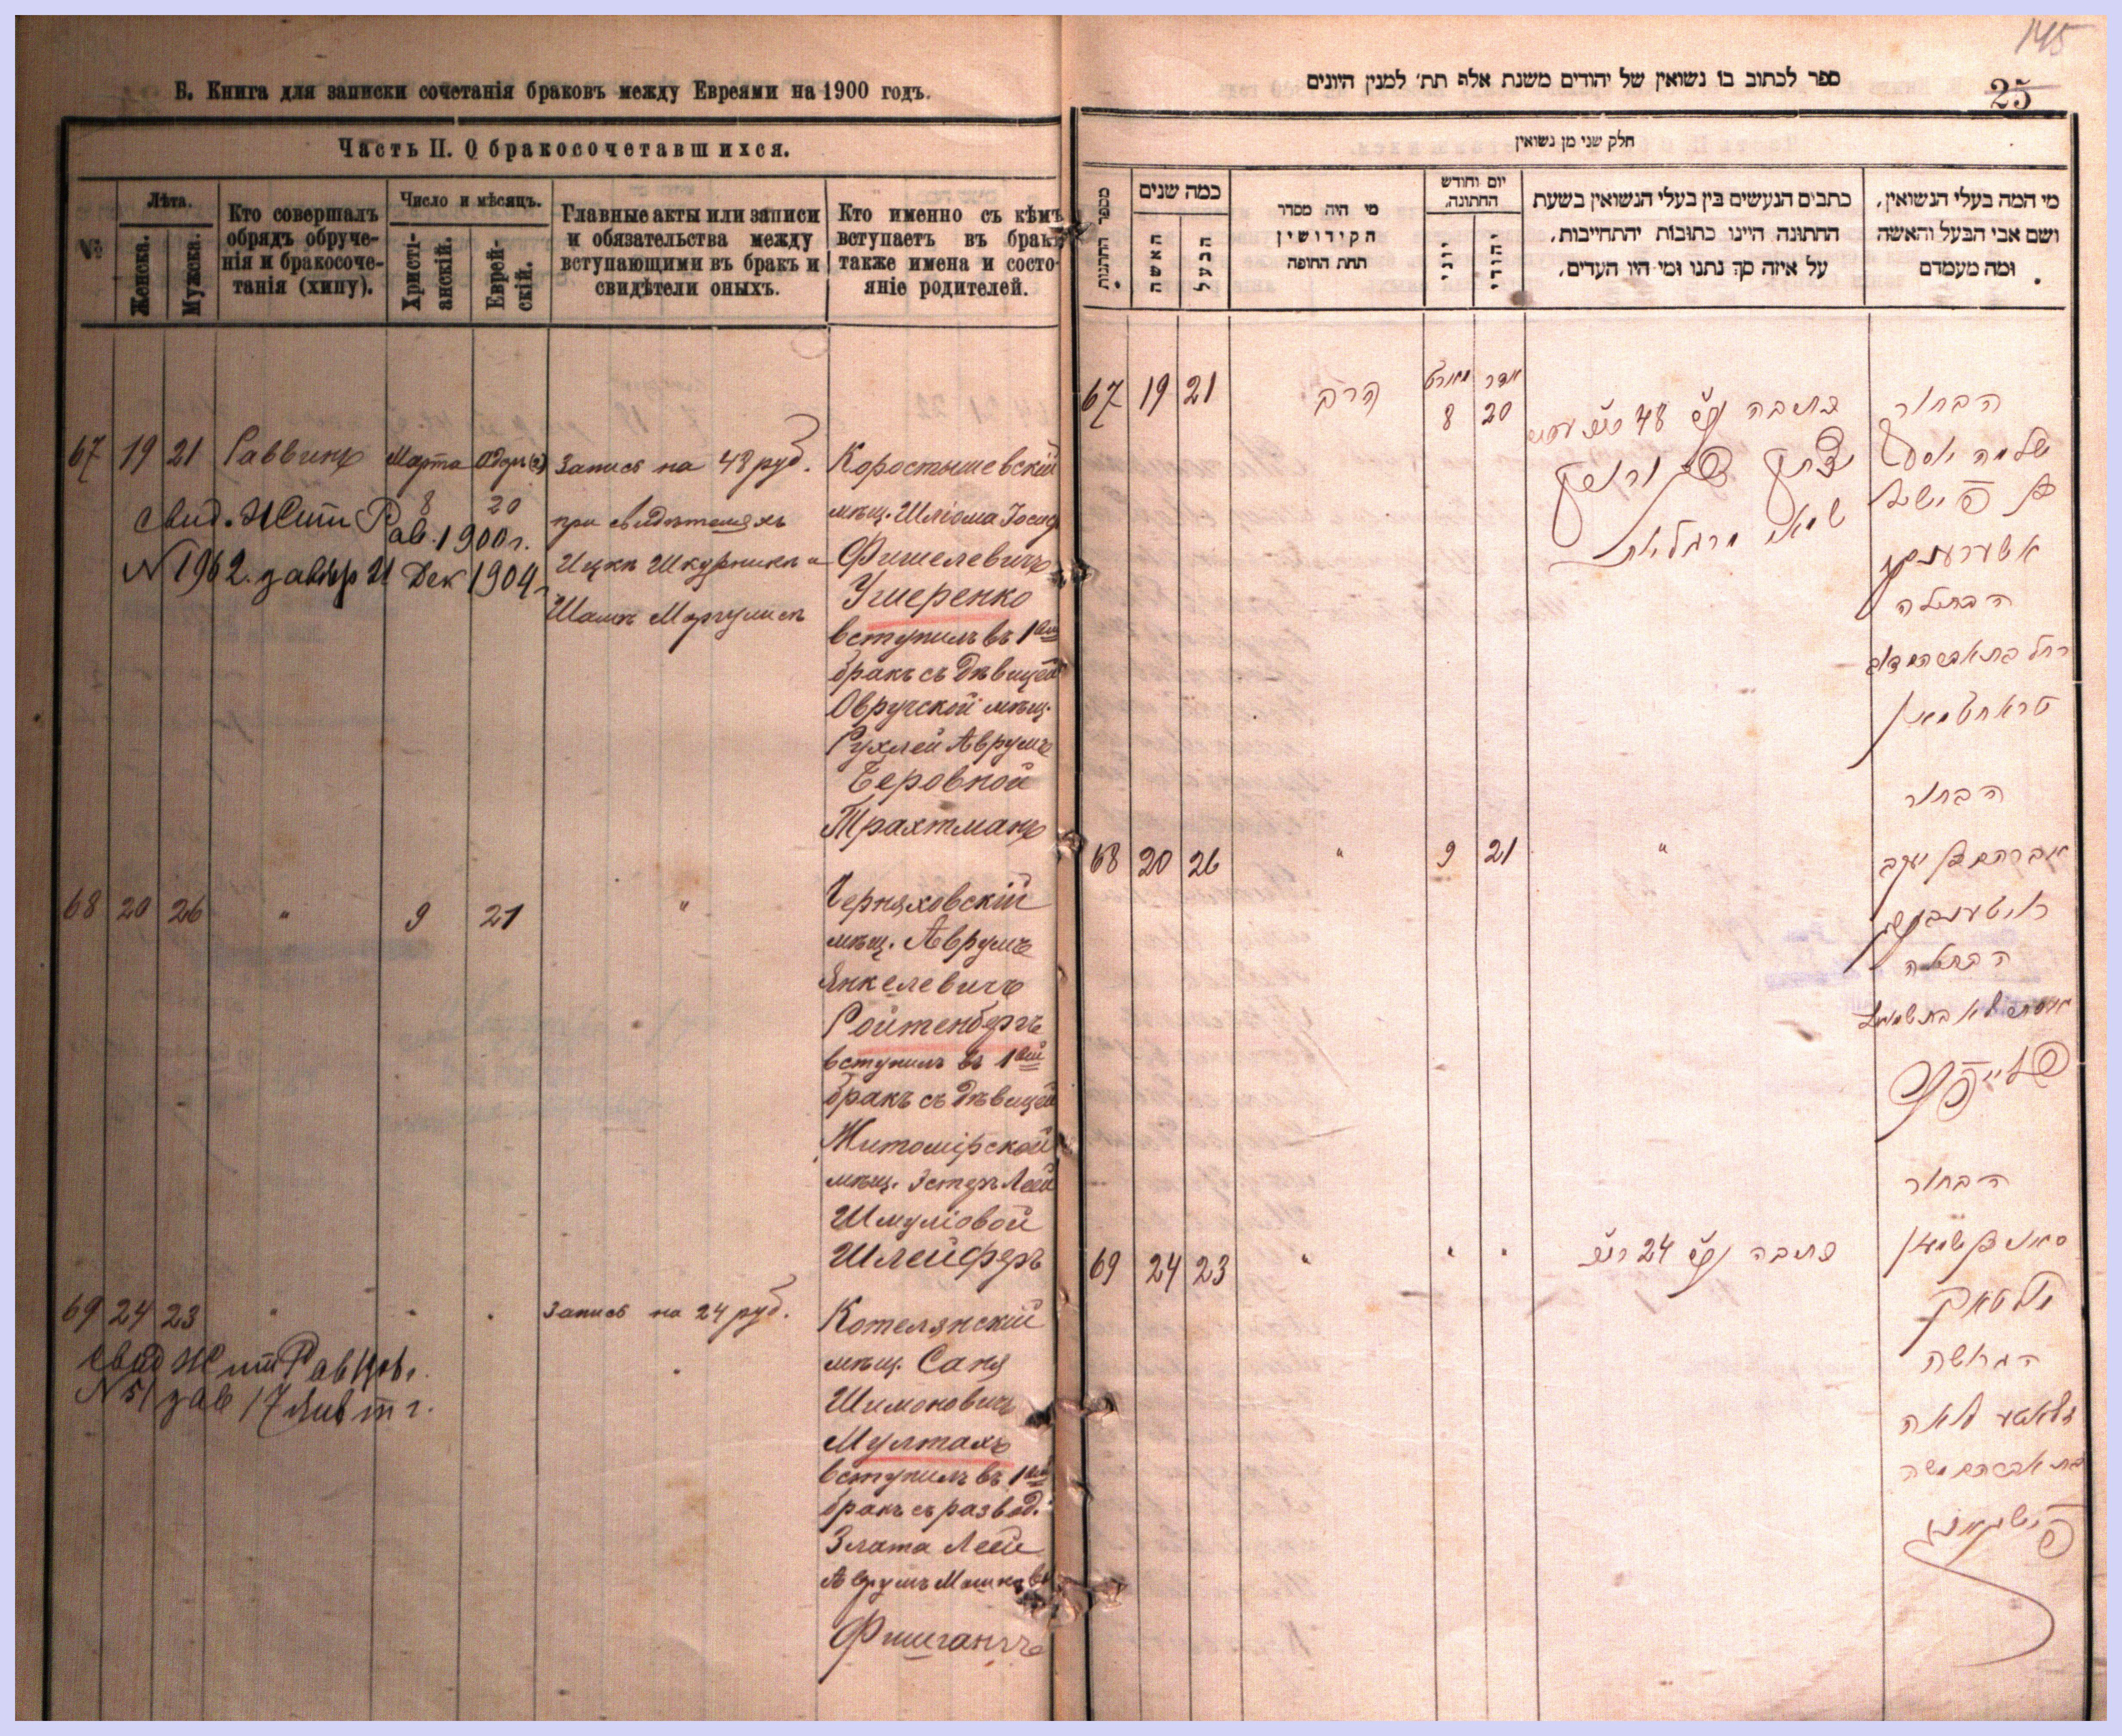 Б. Книга для записки сочетанія браковъ между Евреями на 1900 годъ.
Часть II. О бракосочетавшихся.
№
Лѣта.
Женска.
Мужска.
Кто совершалъ
обрядъ обруче-
нія и бракосоче-
танія (хипу).
Число и мѣсяцъ.
Христі-
анскій.
Еврей-
скій.
Главные акты или записи
и обязательства между
вступающими въ бракъ и
свидѣтели оныхъ.
Кто именно съ кѣмъ
вступаетъ въ бракъ
также имена и состо-
яніе родителей.
67 19 21 Раввинъ Марта 8 20
Запись на 48 руб.
при свидѣтеляхъ
Ицкъ Шкурникъ и
Шамъ Моргулисъ
Коростышевскій
мѣщ. Шліома Іосиф
Фишелевичъ
Ушеренко
вступилъ въ 1ый
бракъ съ дѣвицей
Овручской мѣщ.
Рухлей Аврумъ
Беровной
Трахтманъ
свид. Жит Рав. 1900 г.
N 1962. 21 Дек 1904
68 20 26 " 9 21 "
Черняховскій
мѣщ. Аврумъ
Янкелевичъ
Ройтенбергъ
вступилъ въ 1ый
бракъ съ дѣвицей
Житомірской
мѣщ. Эстеръ Леей
Шмуліовой
Шлейферъ
69 24 23 " " " Запись на 24 руб.
Котелянскій
мѣщ. Саня
Шимоновичъ
Мултахъ
вступилъ въ 1ый
бракъ съ развод.
Злата Леей
Аврумъ Мошков
Фишганъ
свид Жит Рав
N 51 17 Янв т г.
145
25
ספר לכתוב בו נשואין של יהודים משנת אלף תת׳ למנין היונים
חלק שני מן נשואין
מספר החתנות
כמה שנים
האשה
הבעל
מי היה מסדר
הקידושין
תחת החופה
יום וחודש
החתונה.
יוני
יהודי
כתבים הנעשים בין בעלי הנשואין בשעת
החתונה היינו כתובות יהתחייבות,
על איזה סך נתנו ומי היו העדים,
מי המה בעלי הנשואין,
ושם אבי הבעל והאשה
ומה מעמדם
67 19 21 הרב מארט 8 אדר 20
כתובה 48
הבחור
שלמה יוסף
אשערענקא
הבתולה
רחל בת אברהם דוב
טראחטמאן
68 20 26 " 9 21 "
הבחור
אברהם בן יעקב
רויטענבערג
הבתולה
אסתר לאה בת שמואל
שלייפער
69 24 23 " " "
כתובה 24
הבחור
סאניא בן שמעון
מולטאך
הגרושה
זלאטע לאה
בת אברהם משה
פישגאנג